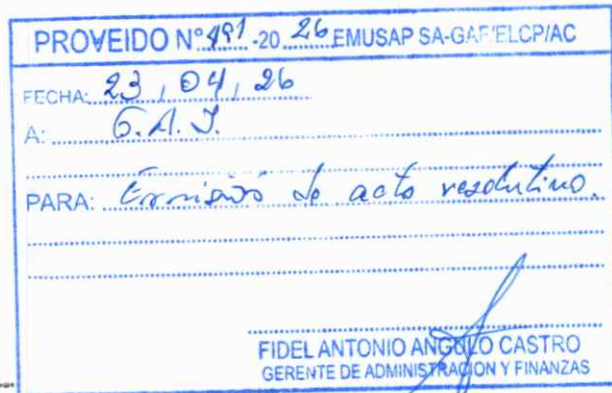 PROVEIDO N° 491 -20 26 EMUSAP SA-GAF/ELCP/AC
FECHA: 23 / 04 / 26
A: G.A.J.
PARA: Emisión de acto resolutivo.
FIDEL ANTONIO ANGULO CASTRO
GERENTE DE ADMINISTRACION Y FINANZAS